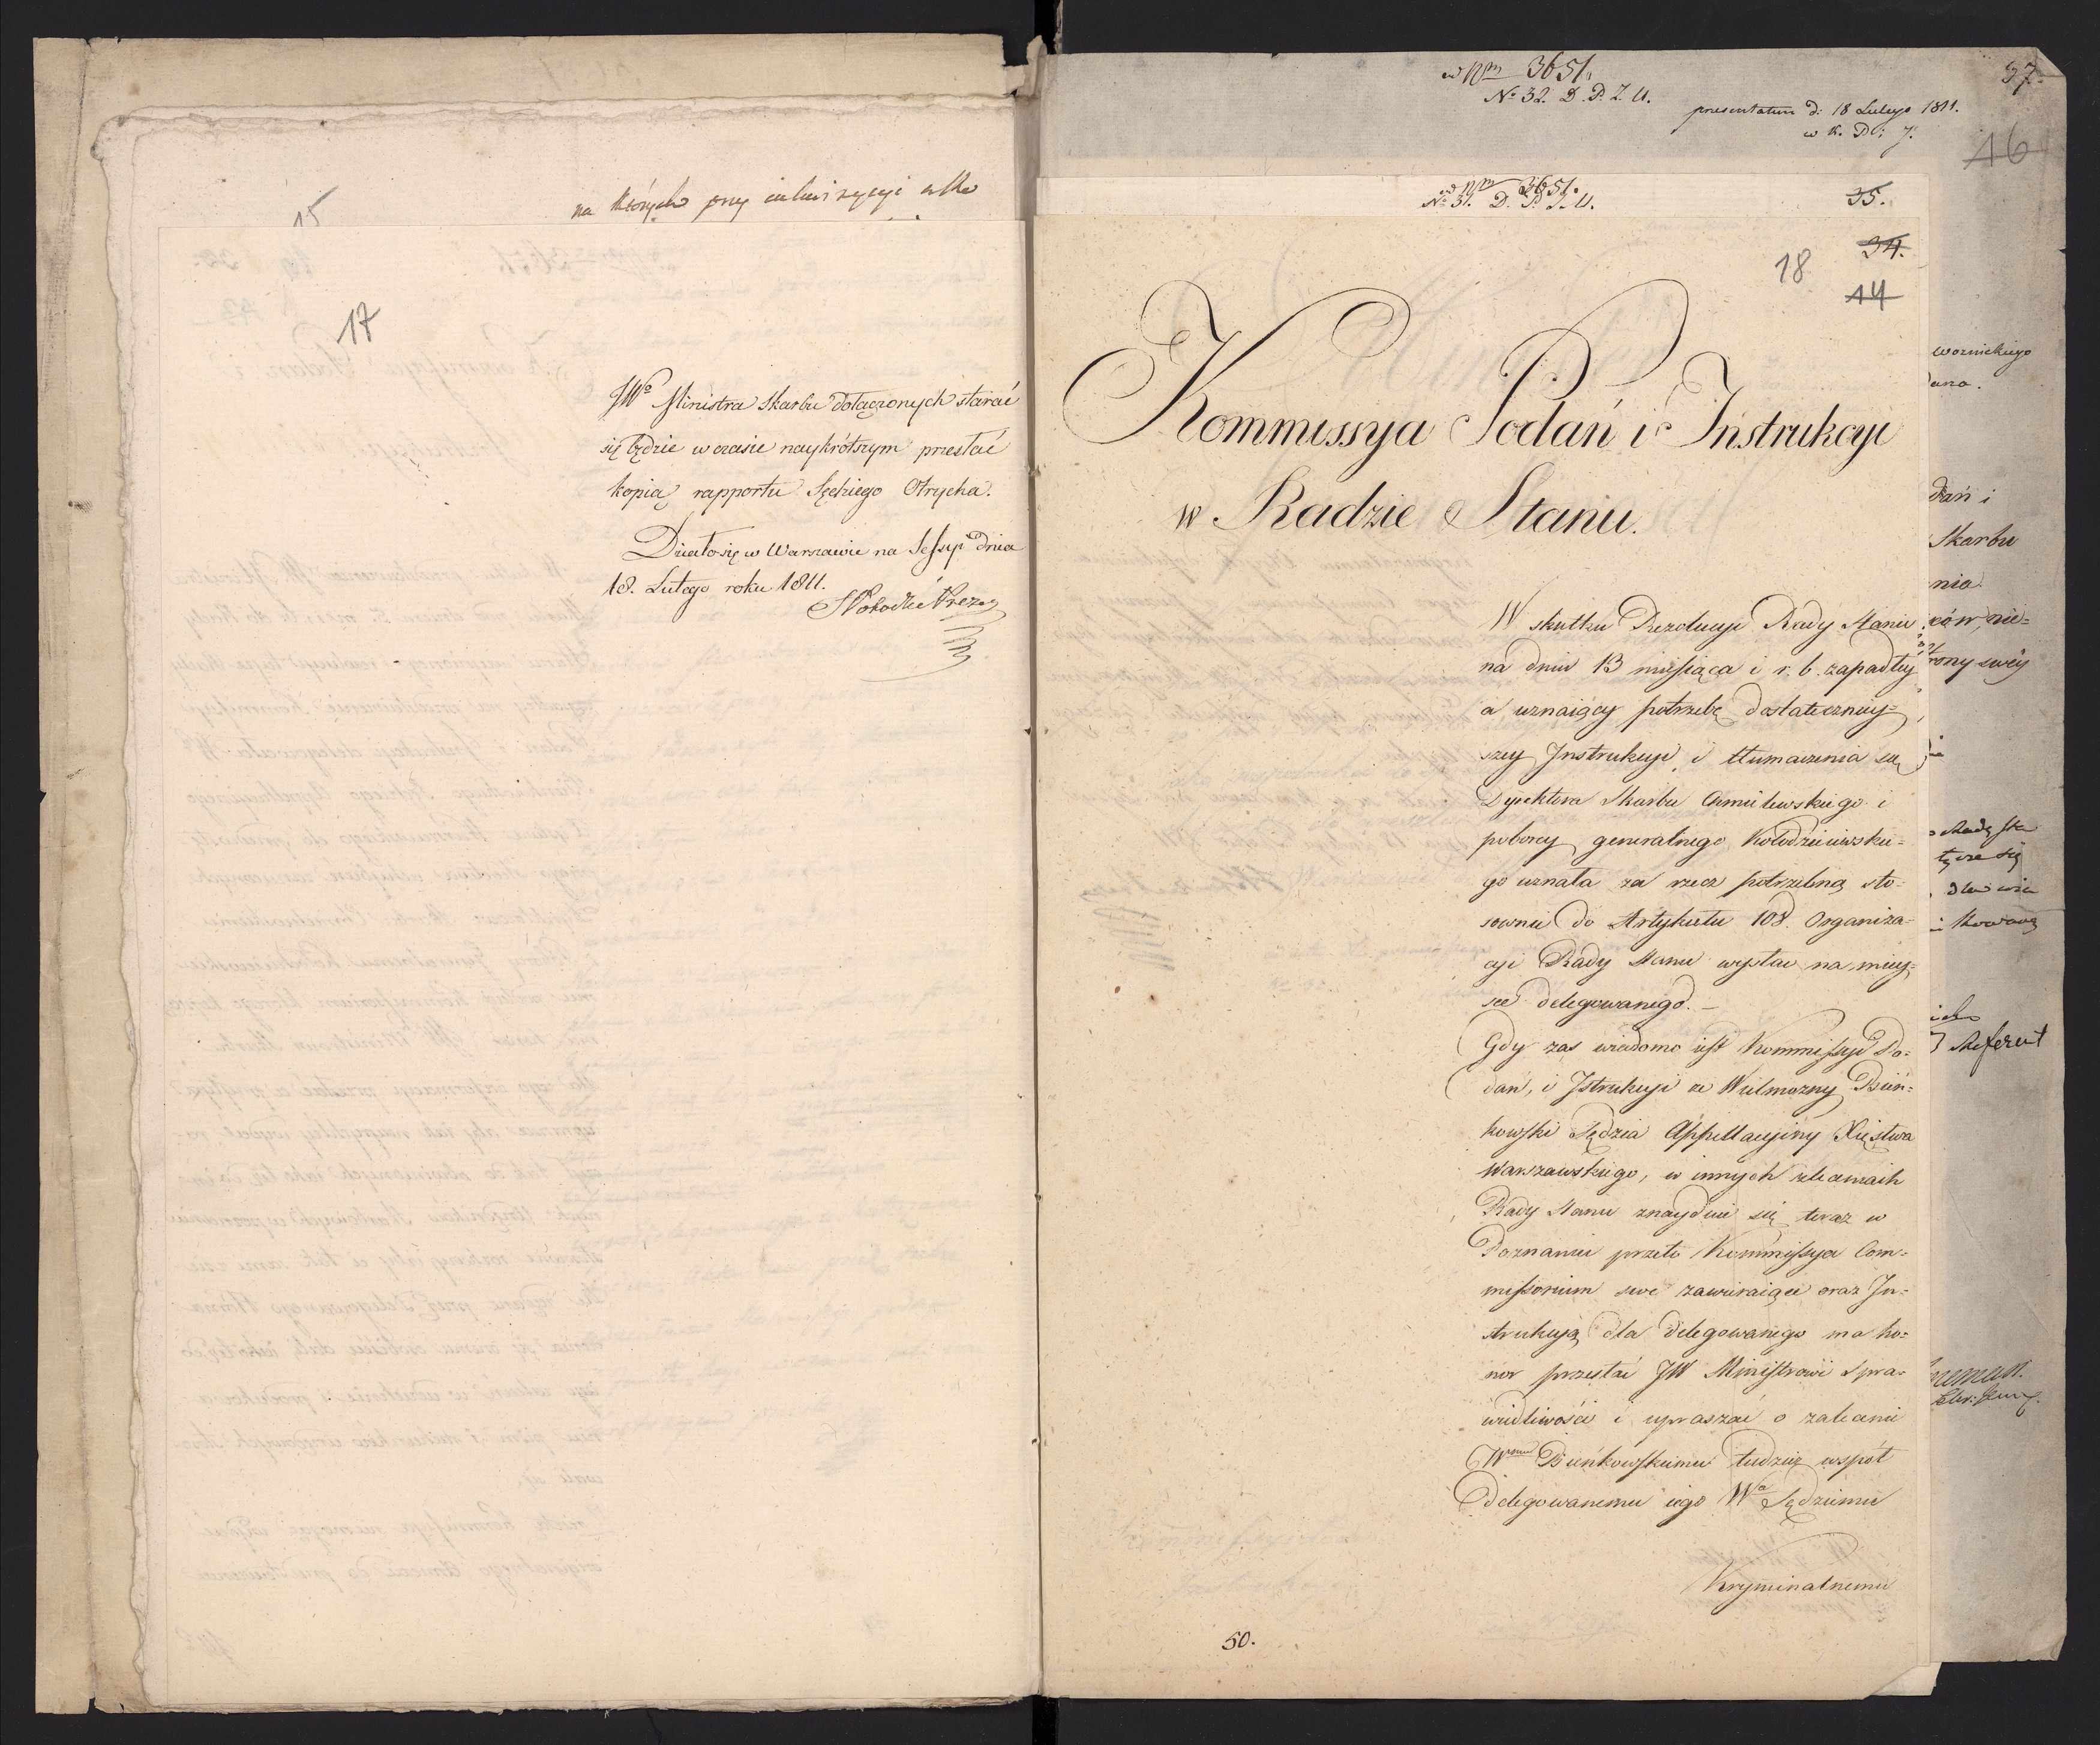 15
na których przy
17
JWo Ministra Skarbu dołączonych starać
się będzie w czasie naykrótszym przesłać
kopią rapportu Sędziego Otrycha.
Działo się w Warszawie na Sessyi dnia
18. Lutego roku 1811.
3651.
No 32. D. P. I. U.
presentatum d: 18 Lutego 1811.
37.
16
3651.
No 31. D. P. I. U.
35.
34.
18
14
Kommissya Podań i Instrukcyi
w Radzie Stanu.
W skutku Rezolucyi Rady Stanu
na dniu 13 miesiąca i r. b. zapadłey
a uznaiącey potrzebę dostateczniey-
szey Instrukcyi i tłumaczenia się
Dyrektora Skarbu Chmielewskiego i
poborcy generalnego Kołodzieiewskie-
go uznała za rzecz potrzebną sto-
sownie do Artykułu 108. Organiza-
cyi Rady Stanu wysłać na miey-
sce delegowanego. —
Gdy zas wiadomo iest Kommissyi Po-
dań, i Istrukcyi że Wielmożny Bień-
kowski Sędzia Appellacyiny Xięstwa
Warszawskiego, w innych zleceniach
Rady Stanu znayduie się teraz w
Poznaniu przeto Kommissya Com-
missorium swe zawieraiące oraz In-
strukcyą dla delegowanego ma ho-
nor przesłać JW Ministrowi Spra-
wiedliwości i upraszać o zalecenie
Wmu Bieńkowskiemu tudzież współ
Delegowanemu iego Wu Sędziemu
Kryminalnemu
50.
woznickiego
dań i
Skarbu
nia
ców, nie-
rony swéy
tycze się
Referent